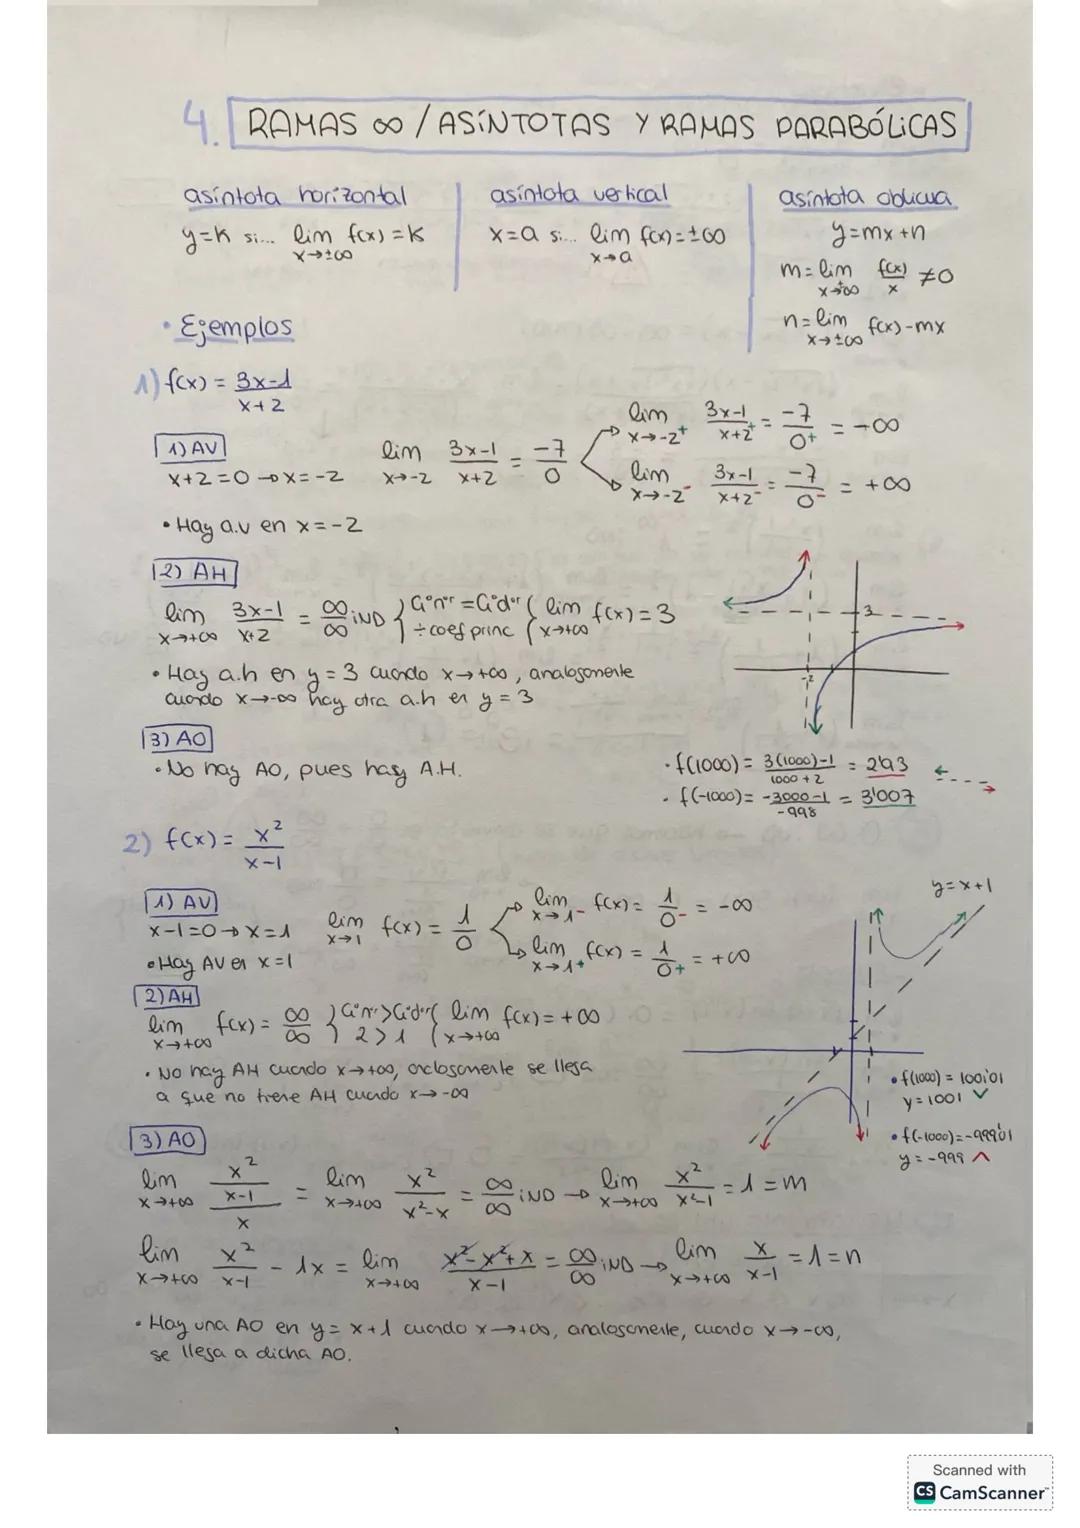 4. RAMAS ∞ / ASÍNTOTAS Y RAMAS PARABÓLICAS
asíntota horizontal
y=K si... lim f(x)=K
x→±∞
asíntota vertical
x=a si... lim f(x)=±∞
x→a
asíntota oblicua
y=mx+n
m=lim f(x)/x ≠0
x→±∞
n=lim f(x)-mx
x→±∞
• Ejemplos
1) f(x) = (3x-1)/(x+2)
1) AV
x+2=0 → x=-2
lim (3x-1)/(x+2) = -7/0
x→-2
lim (3x-1)/(x+2)⁺ = -7/0⁺ = -∞
x→-2⁺
lim (3x-1)/(x+2)⁻ = -7/0⁻ = +∞
x→-2⁻
• Hay a.v en x=-2
2) AH
lim (3x-1)/(x+2) = ∞/∞ iND } Gºnºr = Gºdºr { lim f(x)=3
x→+∞ ÷coef princ x→+∞
• Hay a.h en y=3 cuando x→+∞, analogamente
cuando x→-∞ hay otra a.h en y=3
3
-2
3) AO
• No hay AO, pues hay A.H.
• f(1000) = (3(1000)-1)/(1000+2) = 2'93
• f(-1000) = (-3000-1)/-998 = 3'007
2) f(x) = x²/(x-1)
1) AV
x-1=0→x=1
lim f(x) = 1/0
x→1
lim f(x) = 1/0⁻ = -∞
x→1⁻
lim f(x) = 1/0⁺ = +∞
x→1⁺
• Hay AV en x=1
y=x+1
2) AH
lim f(x) = ∞/∞ } Gºnºr>Gºdºr { lim f(x)=+∞
x→+∞ 2>1 x→+∞
• No hay AH cuando x→+∞, analogamente se llega
a que no tiene AH cuando x→-∞
• f(1000) = 1001'01
y=1001 ✓
• f(-1000)=-999'01
y=-999 ^
3) AO
lim (x²/(x-1))/x = lim x²/(x²-x) = ∞/∞ iND → lim x²/(x²-1) = 1 = m
x→+∞ x→+∞ x→+∞
lim x²/(x-1) - 1x = lim (x²-x²+x)/(x-1) = ∞/∞ iND → lim x/(x-1) = 1 = n
x→+∞ x→+∞ x→+∞
• Hay una AO en y=x+1 cuando x→+∞, analogamente, cuando x→-∞,
se llega a dicha AO.
Scanned with
CS CamScanner™